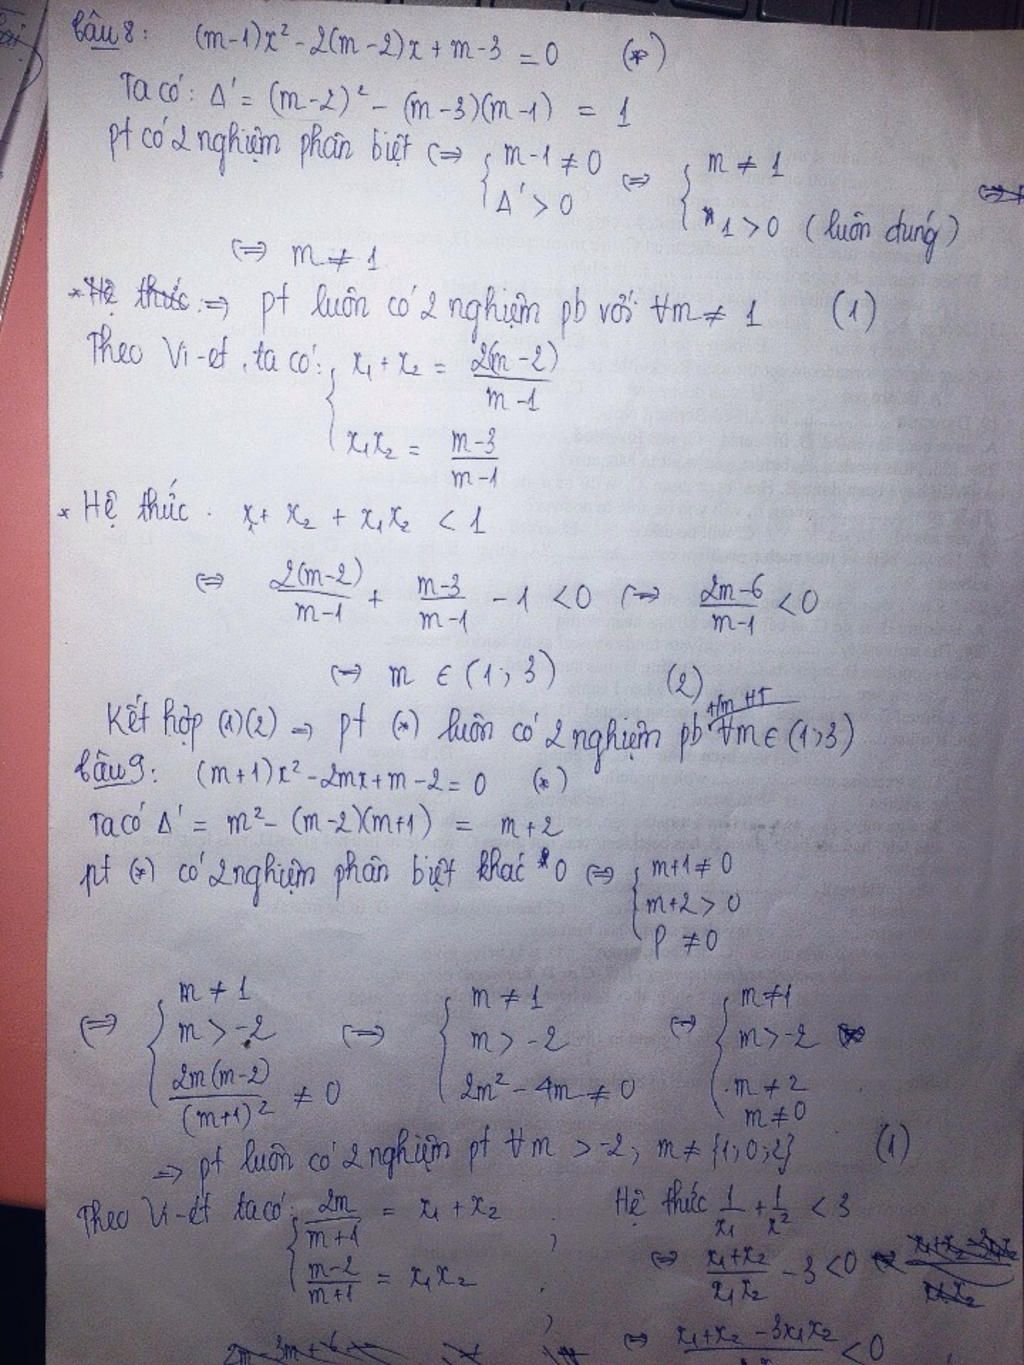 Câu 8: (m-1)x² - 2(m-2)x + m-3 = 0 (*)
Ta có: Δ' = (m-2)² - (m-3)(m-1) = 1
pt có 2 nghiệm phân biệt ⇔ { m-1 ≠ 0 ⇔ { m ≠ 1
Δ' > 0 1 > 0 (luôn đúng)
⇔ m ≠ 1
* Hệ thức: ⇒ pt luôn có 2 nghiệm pb với ∀m ≠ 1 (1)
Theo Vi-et, ta có: { x₁ + x₂ = 2(m-2)/(m-1)
x₁x₂ = (m-3)/(m-1)
* Hệ thức. x₁ + x₂ + x₁x₂ < 1
⇔ 2(m-2)/(m-1) + (m-3)/(m-1) - 1 < 0 ⇔ (2m-6)/(m-1) < 0
⇔ m ∈ (1; 3) (2)
Kết hợp (1)(2) ⇒ pt (*) luôn có 2 nghiệm pb ∀m ∈ (1;3)
Câu 9: (m+1)x² - 2mx + m - 2 = 0 (*)
Ta có Δ' = m² - (m-2)(m+1) = m+2
pt (*) có 2 nghiệm phân biệt khác 0 ⇔ { m+1 ≠ 0
m+2 > 0
P ≠ 0
⇔ { m ≠ 1 ⇔ { m ≠ 1 ⇔ { m ≠ 1
m > -2 m > -2 m > -2
2m(m-2)/(m+1)² ≠ 0 2m² - 4m ≠ 0 m ≠ 2
m ≠ 0
⇒ pt luôn có 2 nghiệm pt ∀m > -2; m ≠ {1; 0; 2} (1)
Theo Vi-et ta có: { 2m/(m+1) = x₁ + x₂ ; Hệ thức 1/x₁ + 1/x² < 3
(m-2)/(m+1) = x₁x₂ ⇔ (x₁+x₂)/(x₁x₂) - 3 < 0
⇔ (x₁+x₂ - 3x₁x₂) < 0